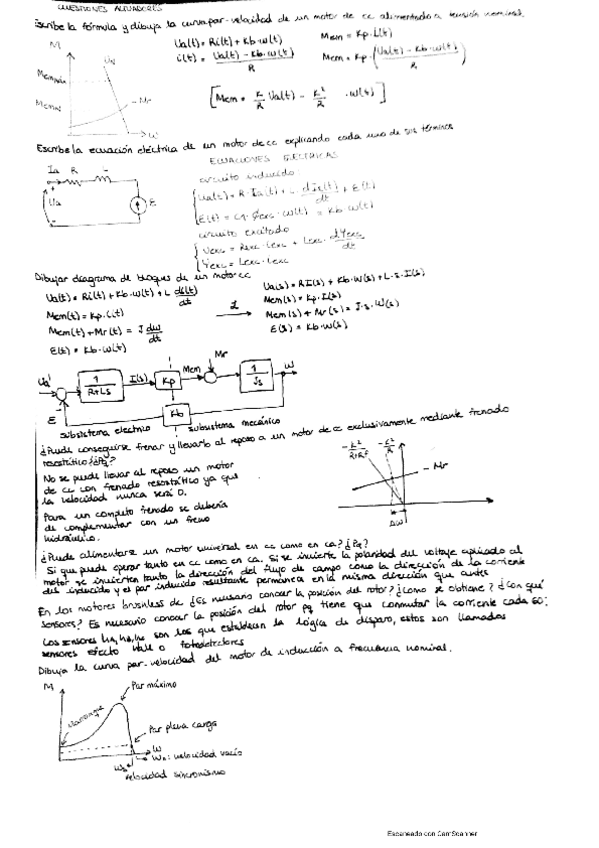 CUESTIONES ACTUADORES
Escribe la fórmula y dibuja la curva par-velocidad de un motor de cc alimentado a tensión nominal.
M
Ua(t) = Ri(t) + Kb·w(t)
Mem = Kp·i(t)
i(t) = Ua(t) - Kb·w(t) / R
Mem = Kp·(Ua(t) - Kb·w(t) / R)
[Mem = K/R Ua(t) - K²/R ·w(t)]
Mr
w
Escribe la ecuación eléctrica de un motor de cc explicando cada uno de sus términos
ECUACIONES ELECTRICAS
circuito inducido
Ia R L
Ua E
Ua(t) = R·Ia(t) + L·dIa(t)/dt + E(t)
circuito excitado
Dibujar diagrama de bloques de un motor cc
Ua(t) = Ri(t) + Kb·w(t) + L di(t)/dt
Ua(s) = RI(s) + Kb·w(s) + L·s·I(s)
Mem(t) = Kp·i(t)
Mem(s) = Kp·I(s)
Mem(t) + Mr(t) = J dw/dt
Mem(s) + Mr(s) = J·s·W(s)
E(t) = Kb·w(t)
E(s) = Kb·w(s)
Mr
Ua 1/R+Ls I(s) Kp Mem 1/Js W
E Kb
subsistema electrico subsistema mecánico
¿Puede conseguirse frenar y llevarlo al reposo a un motor de cc exclusivamente mediante frenado
resostático? ¿Pq?
No se puede llevar al reposo un motor
de cc con frenado resostático ya que
la velocidad nunca será 0.
Para un completo frenado se debería
de complementar con un freno
hidráulico.
-Mr
Δw
¿Puede alimentarse un motor universal en cc como en ca? ¿Pq?
Si que puede operar tanto en cc como en ca. Si se invierte la polaridad del voltaje aplicado al
motor se invierten tanto la dirección del flujo de campo como la dirección de la corriente
del inducido y el par inducido resultante permanece en la misma dirección que antes
En los motores brushless dc ¿Es necesario conocer la posición del rotor? ¿como se obtiene? ¿con qué
sensores? Es necesario conocer la posición del rotor pq tiene que conmutar la corriente cada 60º
Los sensores ha, hb, hc son los que establecen la lógica de disparo, estos son llamados
sensores efecto hall o fotodetectores
Dibuja la curva par-velocidad del motor de inducción a frecuencia nominal.
M
Par máximo
Par plena carga
w
velocidad vacío
velocidad sincronismo
Escaneado con CamScanner